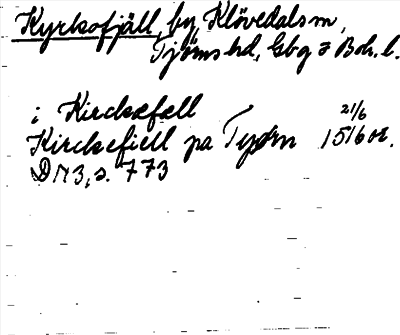 Kyrkofjäll, by, Klövedals sn,
Tjörns hd, Gbg o Boh. l.
i Kirckefell
21/6
Kirckefiell pa Tyørn 1516 or.
DN 3, s. 773